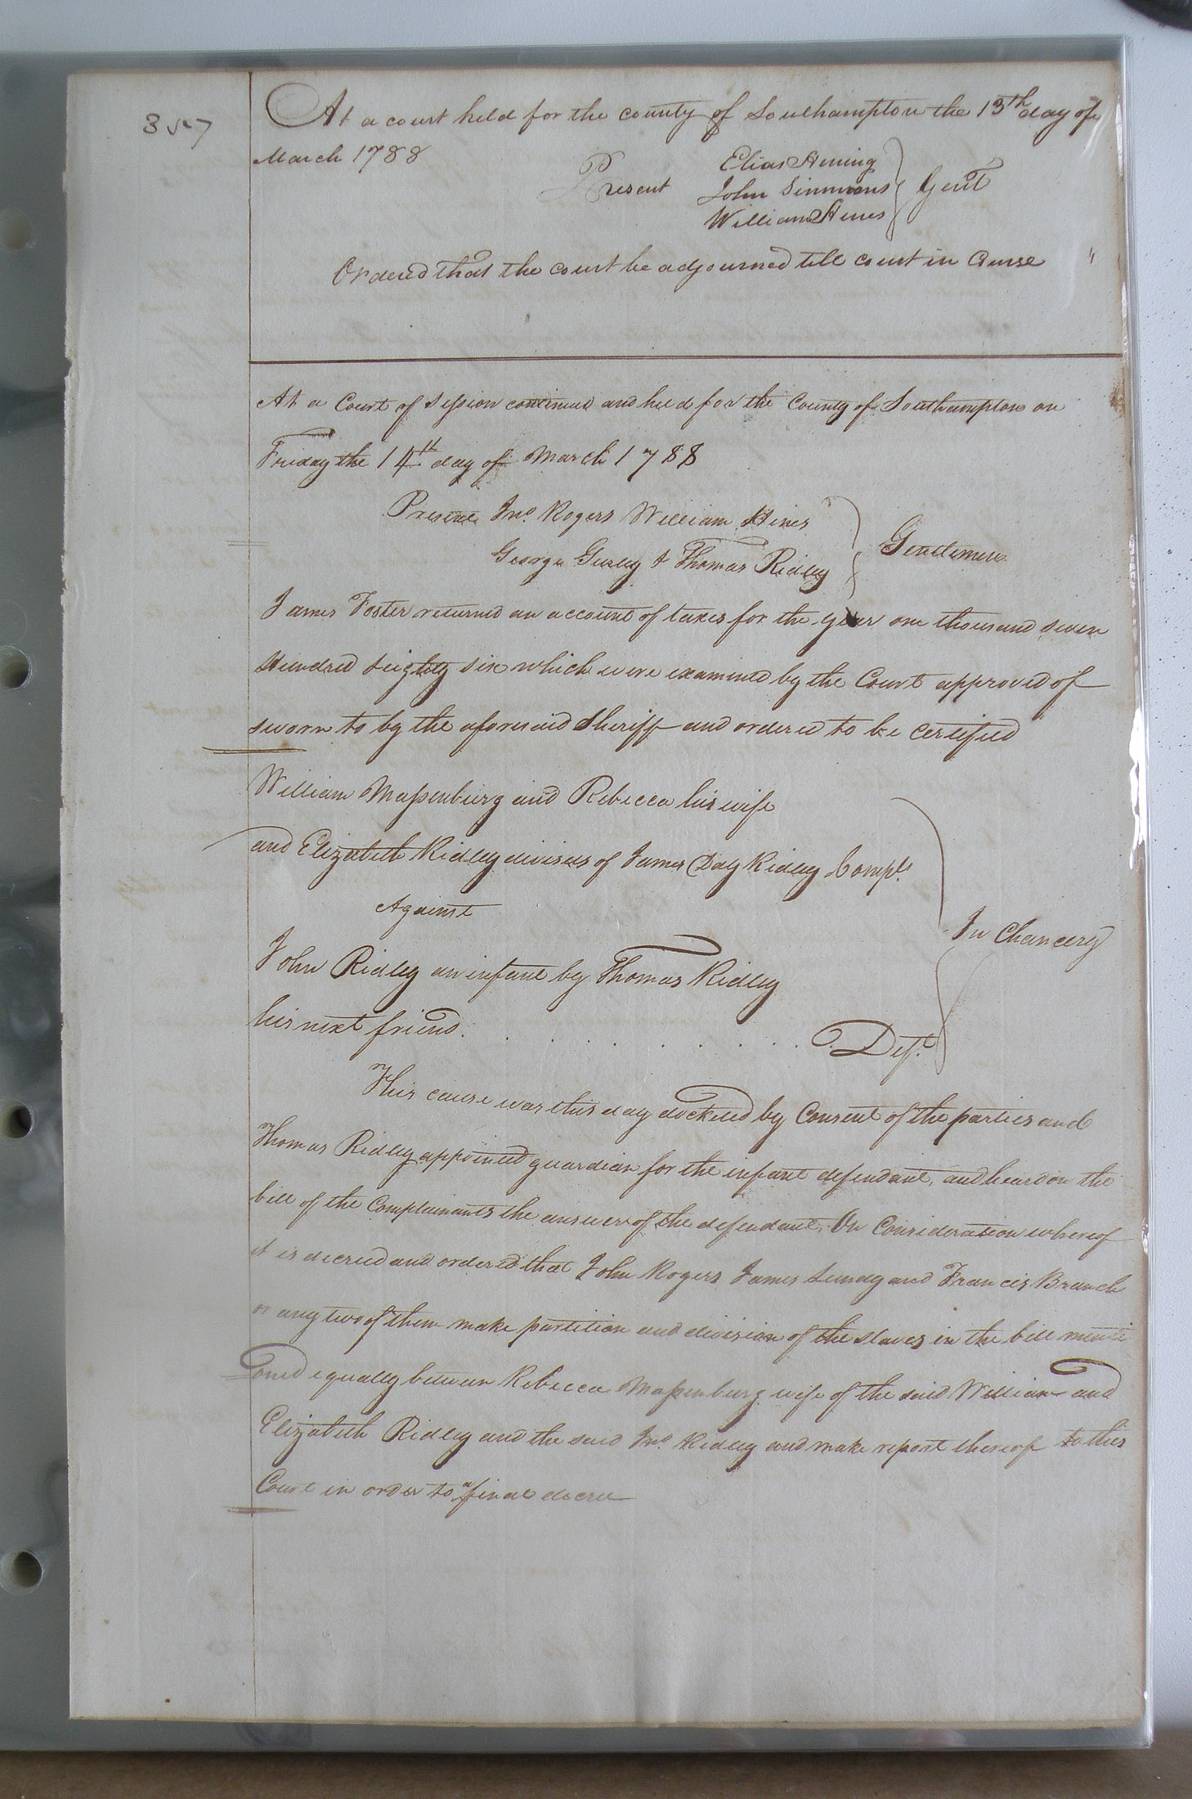 357
At a court held for the county of Southampton the 13th day of
March 1788
Elias Herring
Present John Simmons Gent
William Hines
Ordered that the court be adjourned till court in Course "
At a Court of Session continued and held for the County of Southampton on
Friday the 14th day of March 1788
Present Jno. Rogers William Hines
George Gurley & Thomas Ridley Gentlemen
James Foster returned an account of taxes for the year one thousand seven
Hundred & eighty six which were examined by the Court approved of
sworn to by the aforesaid Sheriff and ordered to be certified
William Massenburg and Rebecca his wife
and Elizabeth Ridley devisees of James Day Ridley Complts
Against
In Chancery
John Ridley an infant by Thomas Ridley
his next friend. . . . . . . . . Deft.
This cause was this day docketed by Consent of the parties and
Thomas Ridley appointed guardian for the infant defendant, and heard on the
bill of the Complainants the answer of the defendant, On Consideration whereof
it is decreed and ordered that John Rogers James Lundy and Francis Branch
or any two of them make partition and division of the slaves in the bill menti
oned equally between Rebecca Massenburg wife of the said William and
Elizabeth Ridley and the said Jno. Ridley and make report thereof to this
Court in order to a final decree